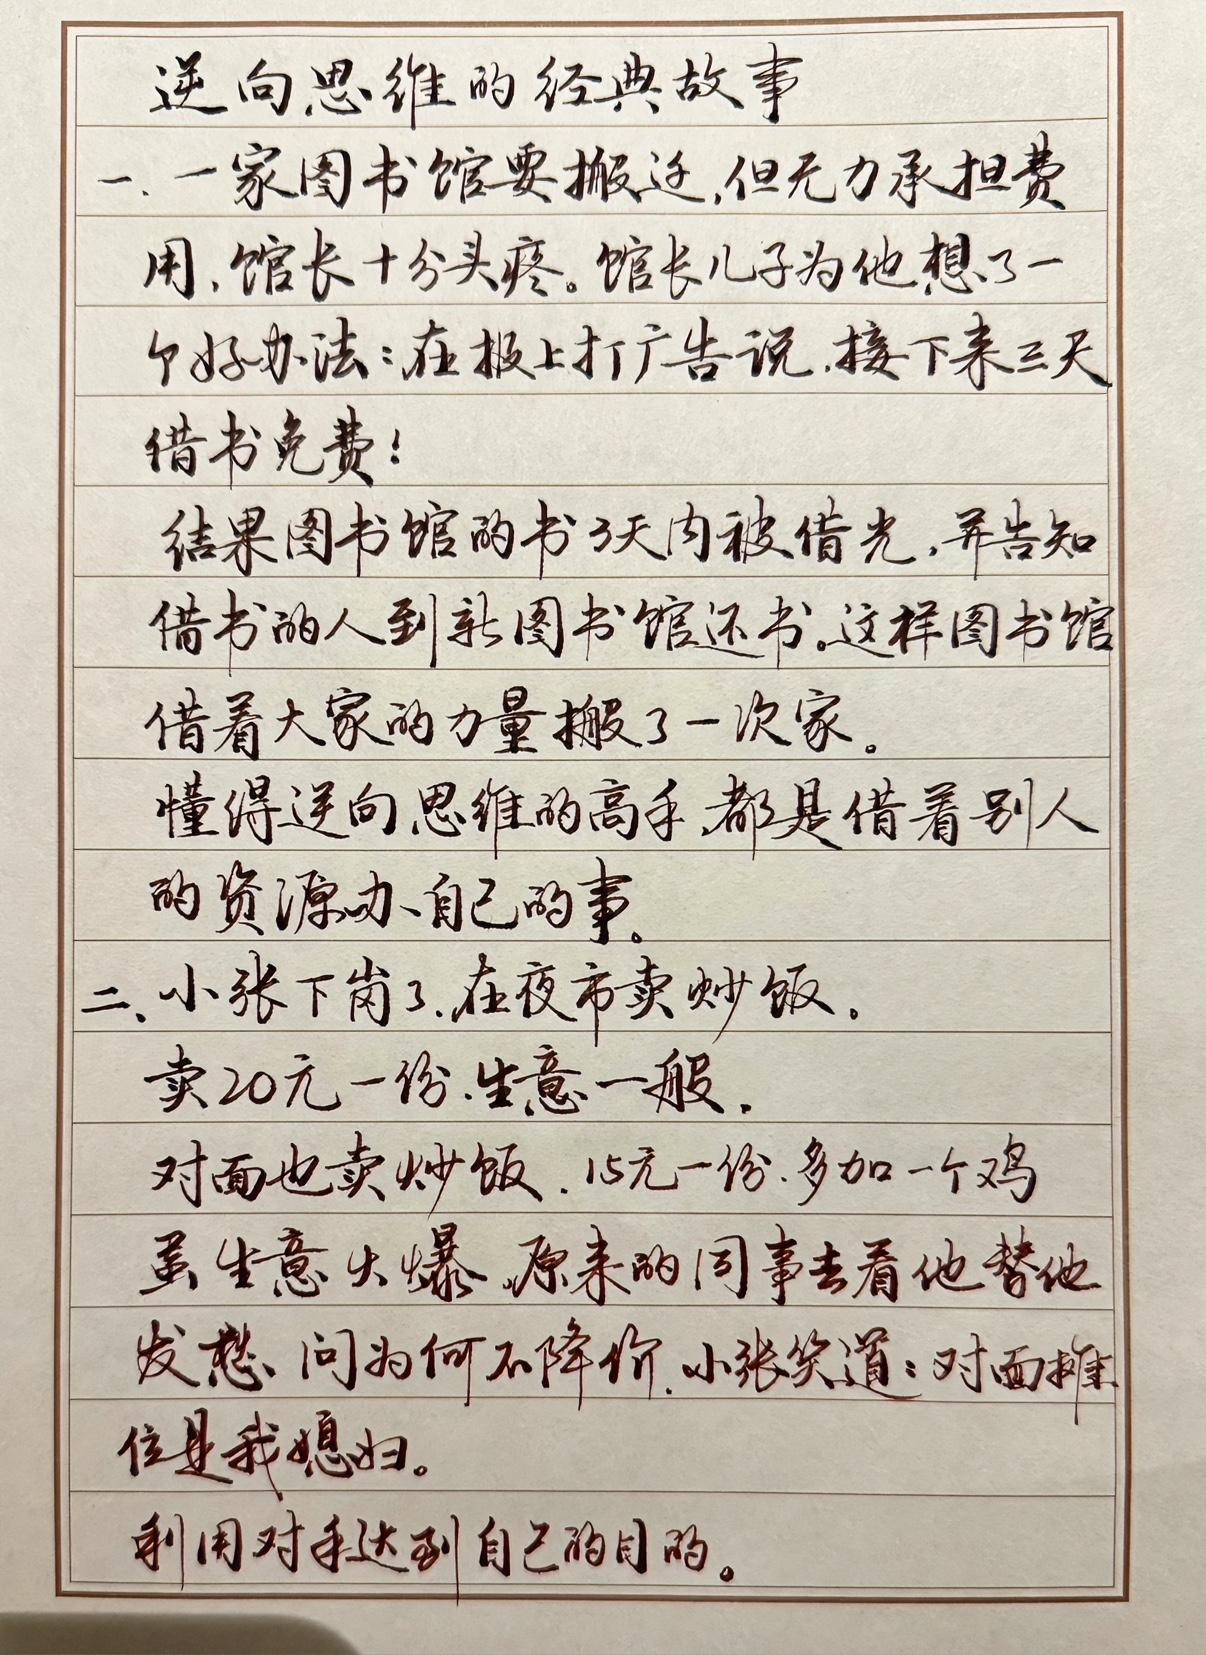 逆向思维的经典故事
一、一家图书馆要搬迁,但无力承担费
用,馆长十分头疼。馆长儿子为他想了一
个好办法:在报上打广告说,接下来三天
借书免费!
结果图书馆的书3天内被借光,并告知
借书的人到新图书馆还书。这样图书馆
借着大家的力量搬了一次家。
懂得逆向思维的高手,都是借着别人
的资源办自己的事。
二、小张下岗了,在夜市卖炒饭,
卖20元一份,生意一般,
对面也卖炒饭,15元一份,多加一个鸡
蛋生意火爆,原来的同事去看他替他
发愁、问为何不降价,小张笑道:对面摊
位是我媳妇。
利用对手达到自己的目的。